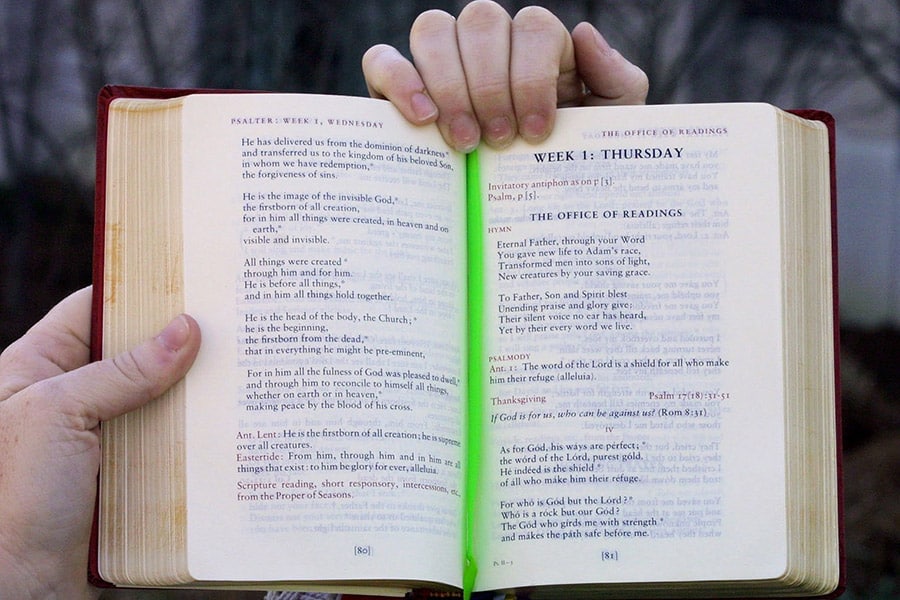 PSALTER: WEEK 1, WEDNESDAY
He has delivered us from the dominion of darkness*
and transferred us to the kingdom of his beloved Son,
whom we have redemption,*
the forgiveness of sins.
He is the image of the invisible God,*
the firstborn of all creation,
for in him all things were created, in heaven and on
earth,*
visible and invisible.
All things were created*
through him and for him.
He is before all things,*
and in him all things hold together.
He is the head of the body, the Church;*
he is the beginning,
the firstborn from the dead,*
that in everything he might be pre-eminent,
For in him all the fulness of God was pleased to dwell,*
and through him to reconcile to himself all things,
whether on earth or in heaven,*
making peace by the blood of his cross.
Ant. Lent: He is the firstborn of all creation; he is supreme
over all creatures.
Eastertide: From him, through him and in him are all
things that exist: to him be glory for ever, alleluia.
Scripture reading, short responsory, intercessions, etc.,
from the Proper of Seasons.
[80]
THE OFFICE OF READINGS
WEEK 1: THURSDAY
Invitatory antiphon as on p [3].
Psalm, p [5].
THE OFFICE OF READINGS
HYMN
Eternal Father, through your Word
You gave new life to Adam's race,
Transformed men into sons of light,
New creatures by your saving grace.
To Father, Son and Spirit blest
Unending praise and glory give:
Their silent voice no ear has heard,
Yet by their every word we live.
PSALMODY
Ant. 1: The word of the Lord is a shield for all who make
him their refuge (alleluia).
Thanksgiving Psalm 17(18):31-51
If God is for us, who can be against us? (Rom 8:31)
IV
As for God, his ways are perfect;*
the word of the Lord, purest gold.
He indeed is the shield*
of all who make him their refuge.
For who is God but the Lord?*
Who is a rock but our God?
The God who girds me with strength*
and makes the path safe before me.
[81]